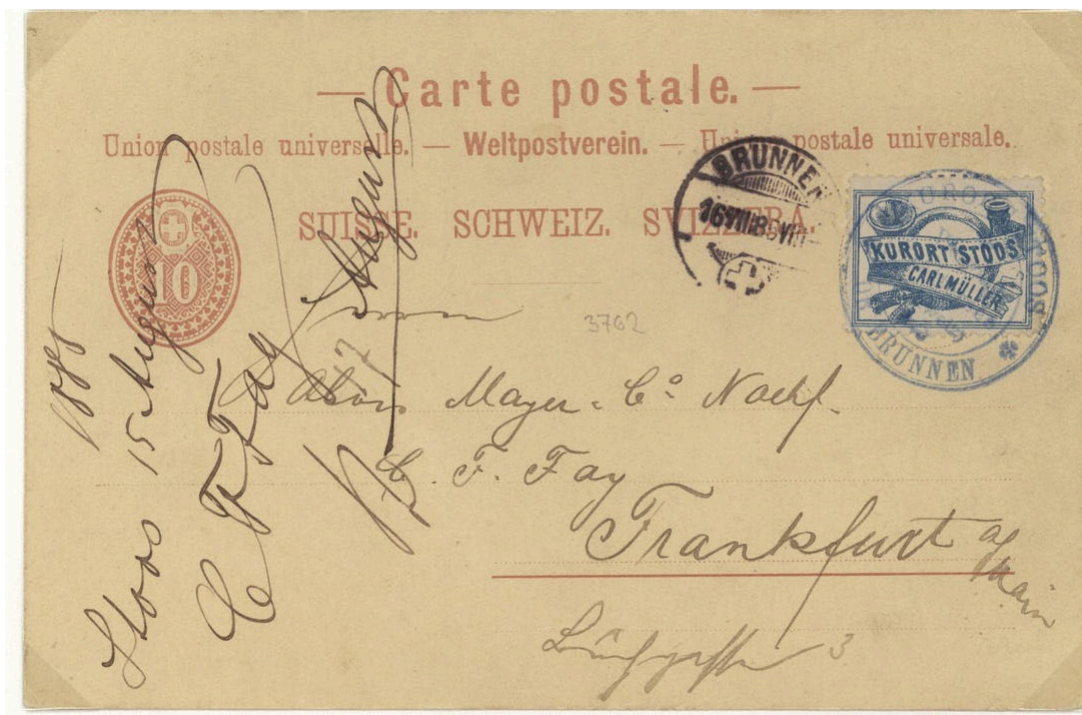 — Carte postale. —
Union postale universelle. — Weltpostverein. — Unione postale universale.
SUISSE. SCHWEIZ. SVIZZERA.
10
BRUNNEN
16 VIII 85 VIII
KURORT STOOS
CARL MÜLLER
BRUNNEN
3762
Herrn
Alois Mayer & Co Nachf.
C. F. Fay
Frankfurt a/Main
3
1885
Stoos 15 August
C F Fay
17 August